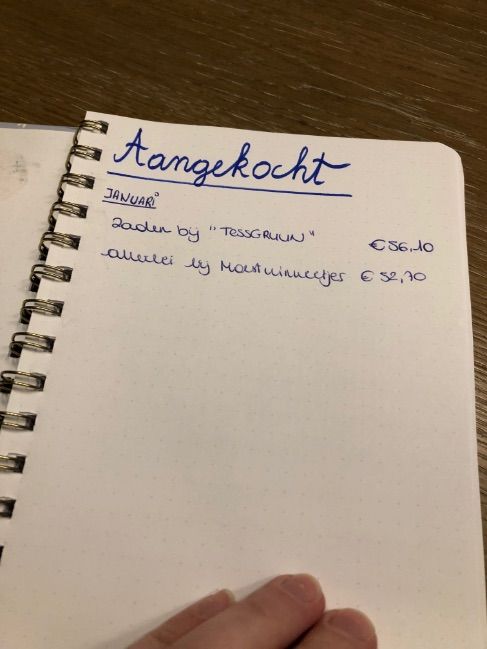 Aangekocht
JANUARI
Zaden bij "TESSGRUUN" € 56,10
allerlei bij Moestuinweetjes € 52,70